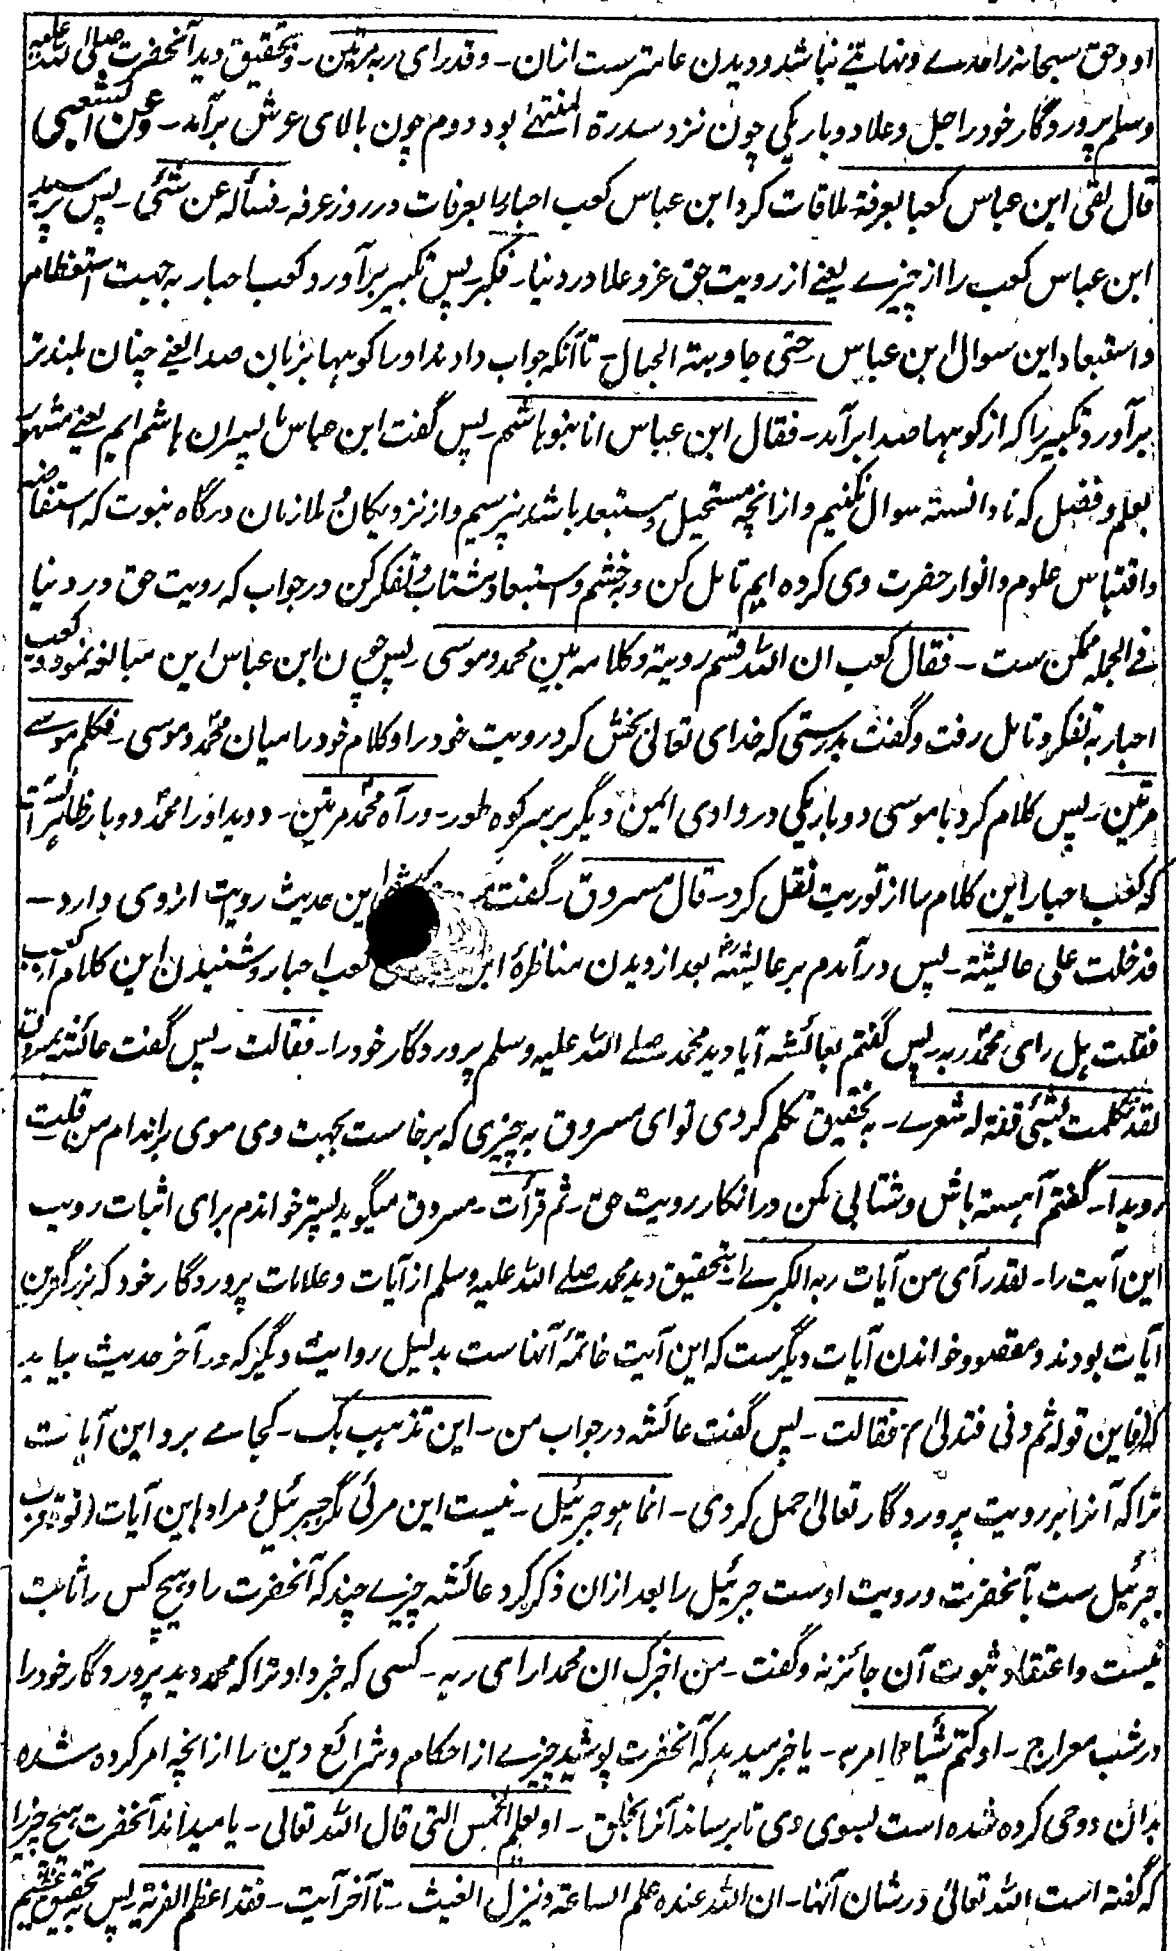 او وحق سبحانه را حدے ونهایتے نباشد و دیدن عامترست ازان ۔ وقد رای ربه مرتین ۔ وبتحقیق دید آنحضرت صلی الله علیه
وسلم پروردگار خود را جل وعلا دو بار یکی چون نزد سدرة المنتهٰے بود دوم چون بالای عرش برآمد ۔ وعن الشعبی
قال لقی ابن عباس کعبا بعرفة ملاقات کرد ابن عباس کعب احبار را بعرفات در روز عرفه ۔ فسأله عن شئی ۔ پس پرسید
ابن عباس کعب را از چیزے یعنے از رویت حق عز وعلا در دنیا ۔ فکبر پس تکبیر برآورد کعب احبار به جهت استعظام
واستبعاد این سوال ابن عباس ۔ حتی جاوبته الجبال ۔ تا آنکه جواب دادند او را کوهها بزبان صدا یعنے چنان بلند تر
برآورد تکبیر را که از کوهها صدا برآمد ۔ فقال ابن عباس انا بنو هاشم ۔ پس گفت ابن عباس ما پسران هاشم ایم یعنے مشهور
بعلم وفضل که نادانسته سوال نکنیم و از انچه مستحیل ومستبعد باشد نپرسیم و از نزدیکان و ملازمان درگاه نبوت که استفاضه
واقتباس علوم وانوار حضرت وی کرده ایم تامل کن و بخشم واستبعاد مشتاب وتفکر کن در جواب که رویت حق در دنیا
فے الجمله ممکن ست ۔ فقال کعب ان الله قسم رویته وکلامه بین محمد وموسی پس چون ابن عباس این مبالغه نمود کعب
احبار به تفکر وتامل رفت وگفت بدرستی که خدای تعالیٰ بخش کرد رویت خود را وکلام خود را میان محمد وموسی ۔ فکلم موسے
مرتین ۔ پس کلام کرد با موسی دو بار یکی در وادی ایمن دیگر بر سر کوه طور ۔ ورآه محمد مرتین ۔ ودید او را محمد دو بار ظاهر آنست
که کعب احبار این کلام را از توریت نقل کرد ۔ قال مسروق ۔ گفت این حدیث روایت ازوی دارد ۔
فدخلت علی عائیشة ۔ پس درآمدم بر عائیشهؓ بعد از دیدن مناظرهٔ کعب احبار وشنیدن این کلام از کعب
فقلت هل رای محمد ربه پس گفتم بعائشه آیا دید محمد صلے الله علیه وسلم پروردگار خود را ۔ فقالت ۔ پس گفت عائشه بمسروق
لقد تکلمت بشئی قف له شعرے ۔ به تحقیق تکلم کردی تو ای مسروق به چیزی که برخاست بجهت وی موی بر اندام من قلت
رویدا ۔ گفتم آهسته باش وشتابی مکن در انکار رویت حق ۔ ثم قرأت ۔ مسروق میگوید پستر خواندم برای اثبات رویت
این آیت را ۔ لقد رآی من آیات ربه الکبرے ۔ بتحقیق دید محمد صلے الله علیه وسلم از آیات وعلامات پروردگار خود که بزرگترین
آیات بودند ومقصود خواندن آیات دیگرست که این آیت خاتمهٔ آنهاست بدلیل روایت دیگر که در آخر حدیث بیاید
که فاین قوله ثم دنی فتدلیٰ فقالت ۔ پس گفت عائشه در جواب من ۔ این تذهب بک ۔ کجا مے برد این آیات
ترا که آنرا بر رویت پروردگار تعالیٰ حمل کردی ۔ انما هو جبرئیل ۔ نیست این مرئی مگر جبرئیل و مراد این آیات قرب
جبرئیل ست بآنحضرت ورویت اوست جبرئیل را بعد ازان ذکر کرد عائشه چیزے چند که آنحضرت را وهیچ کس را ثابت
نیست واعتقاد ثبوت آن جائز نه وگفت ۔ من اخبرک ان محمدا رای ربه ۔ کسی که خبر داد ترا که محمد دید پروردگار خود را
در شب معراج ۔ او کتم شیا مما امر به ۔ یا خبر میدهد که آنحضرت پوشید چیزے از احکام وشرائع دین را از انچه امر کرده شده
بدان ووحی کرده شده است بسوی وی تا برساند آنرا بخلق ۔ او یعلم الخمس التی قال الله تعالی ۔ یا میداند آنحضرت پنج چیز را
که گفته است الله تعالیٰ در شان آنها ۔ ان الله عنده علم الساعة وینزل الغیث ۔ تا آخر آیت ۔ فقد اعظم الفریة پس به تحقیق